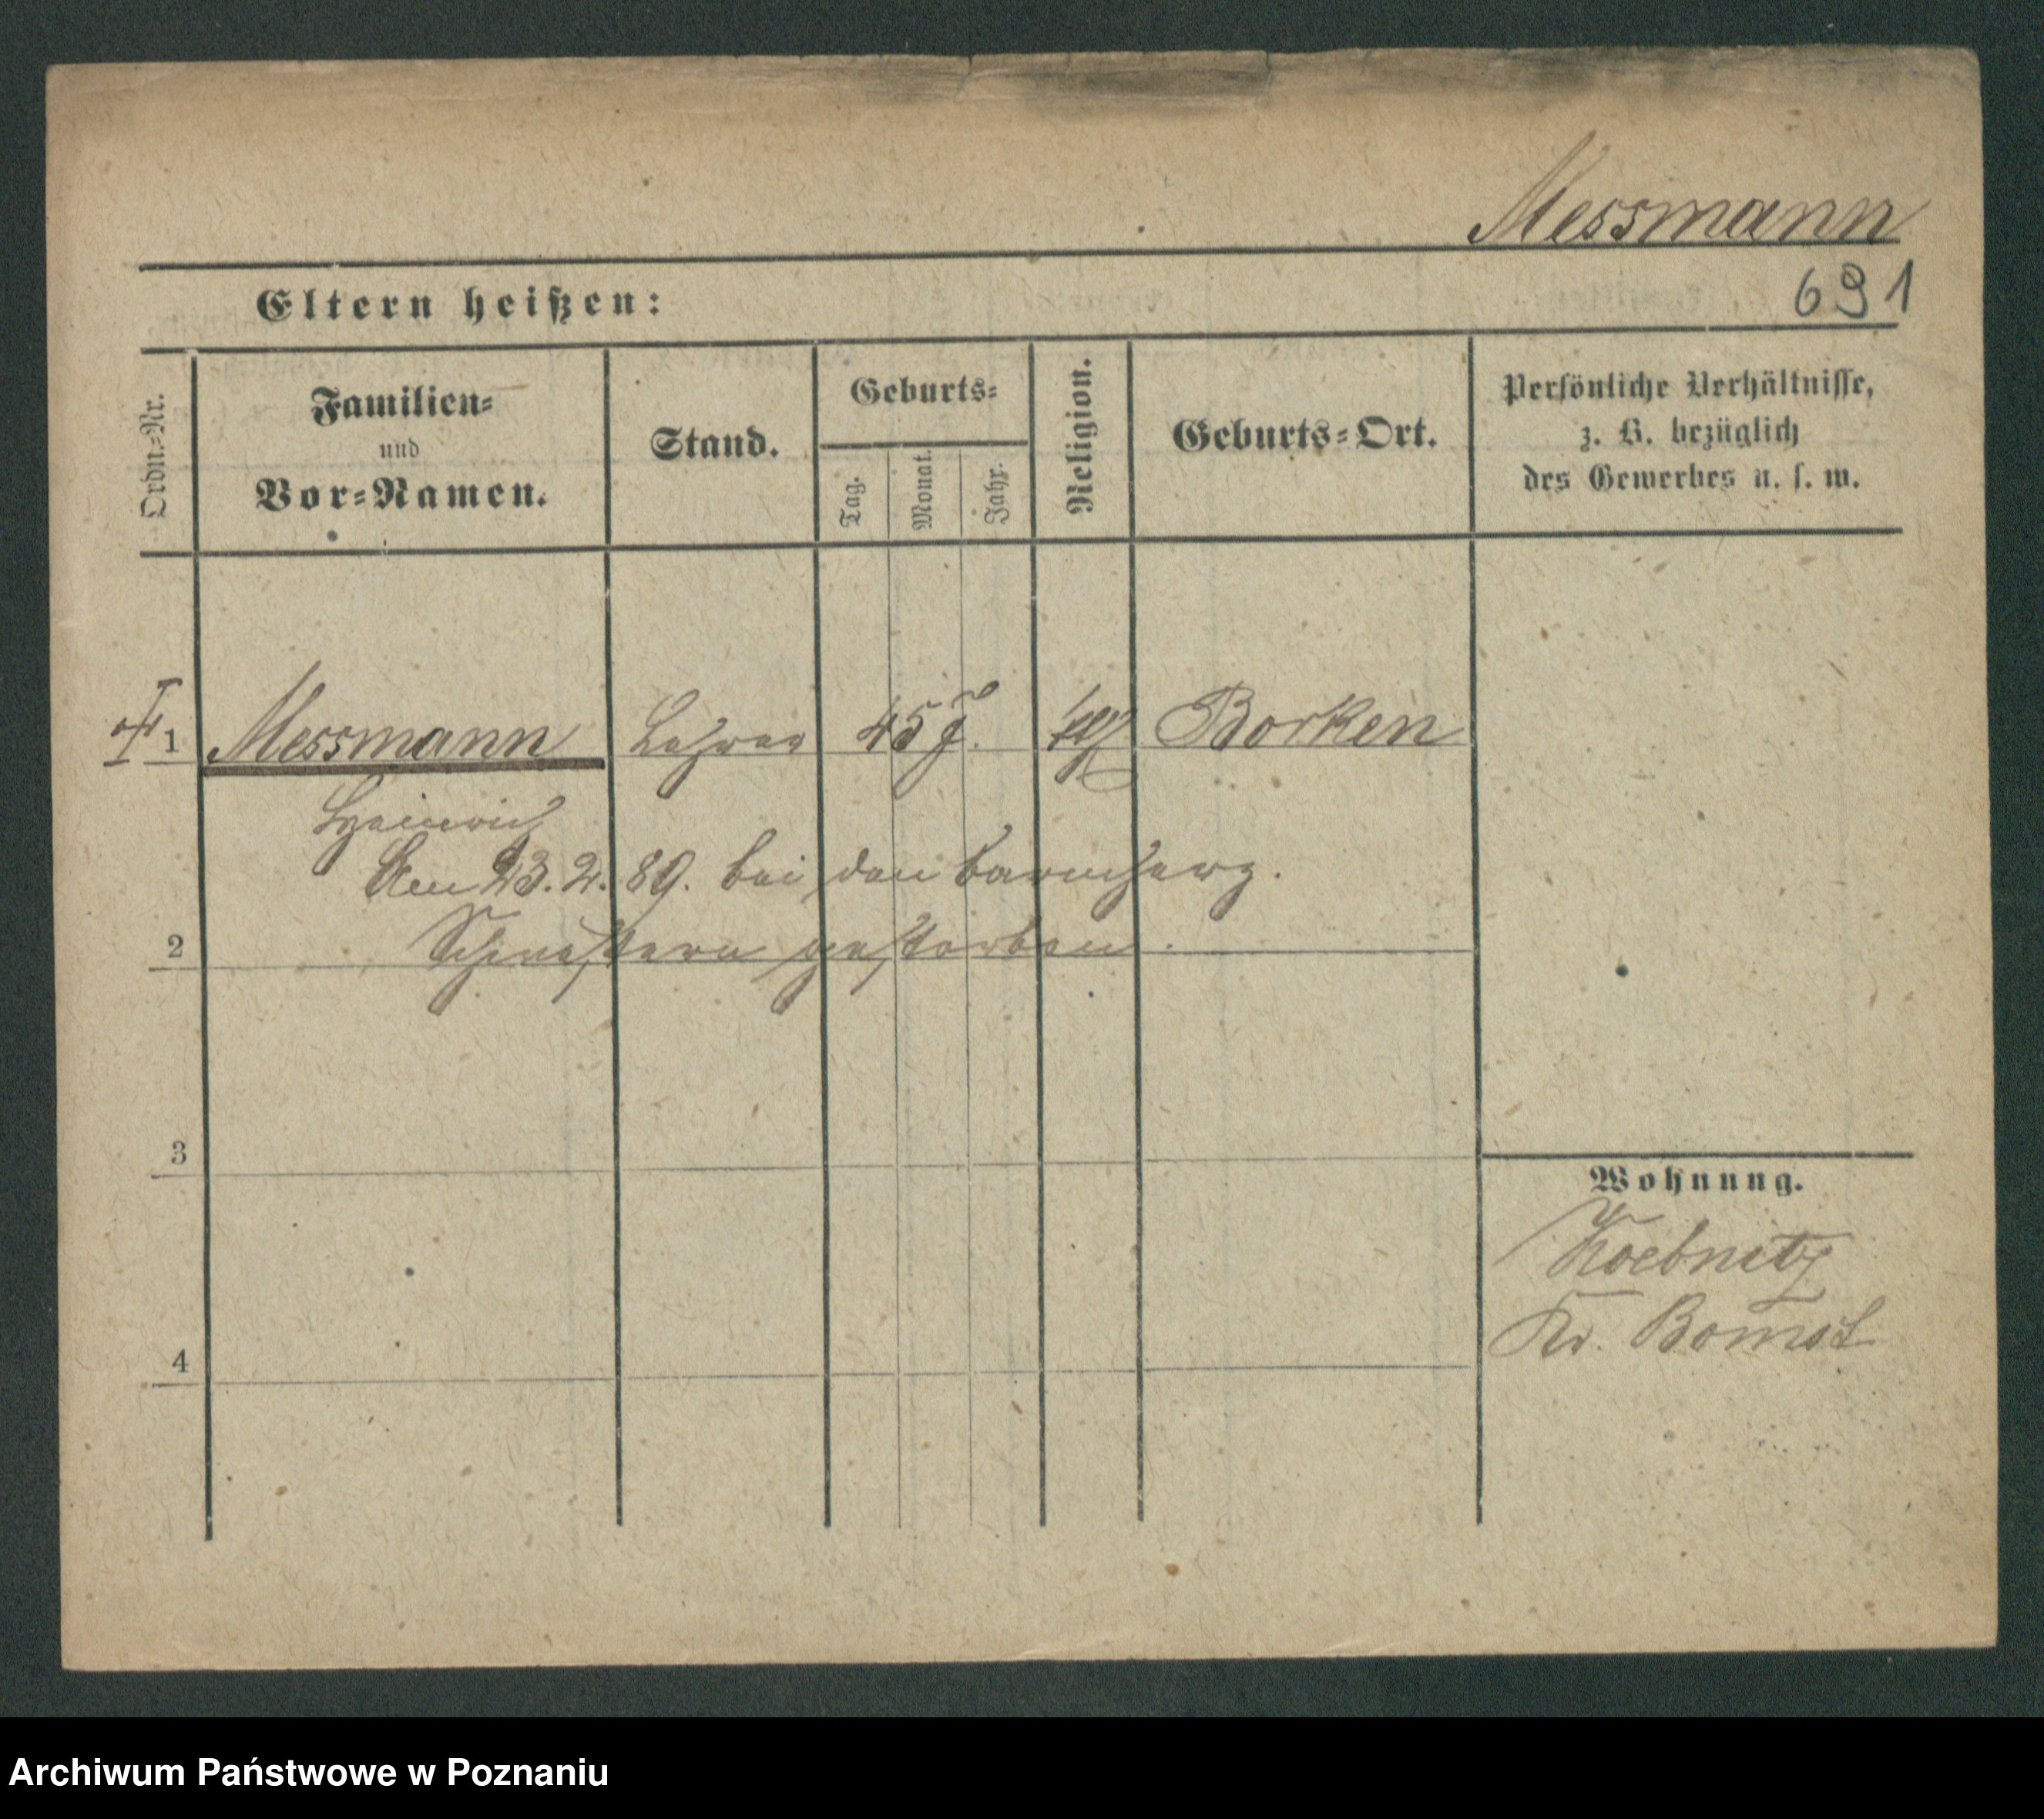 Messmann
691
Eltern heißen:
Ordn.=Nr.
Familien=
und
Vor=Namen.
Stand.
Geburts=
Tag.
Monat.
Jahr.
Religion.
Geburts=Ort.
Persönliche Verhältnisse,
z. B. bezüglich
des Gewerbes u. s. w.
1 Messmann Lehrer 45 J. Borken
Heinrich
Am 23.2.89. bei den barmherz.
2 Schwestern gestorben.
3
Wohnung.
Koebnitz
Kr. Bomst
4
Archiwum Państwowe w Poznaniu